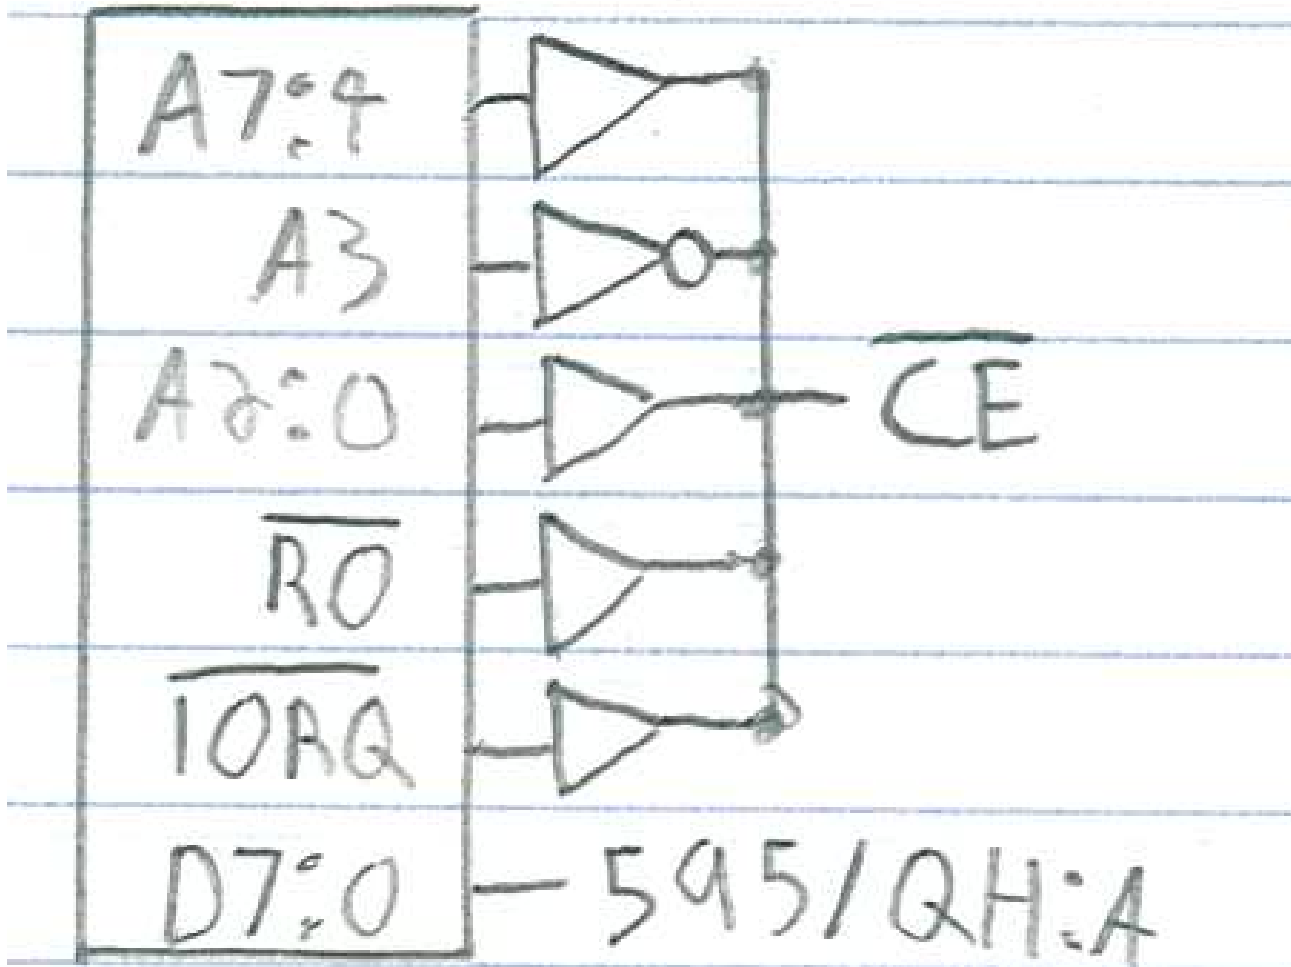 A7:4
A3
A2:0
CE
RO
IORQ
D7:0
595/QH:A